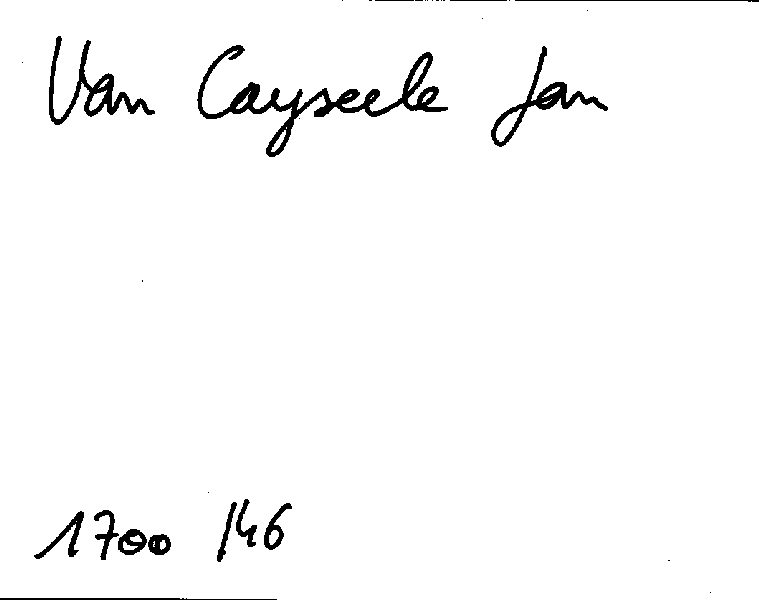 Van Cayseele Jan
1700 /46